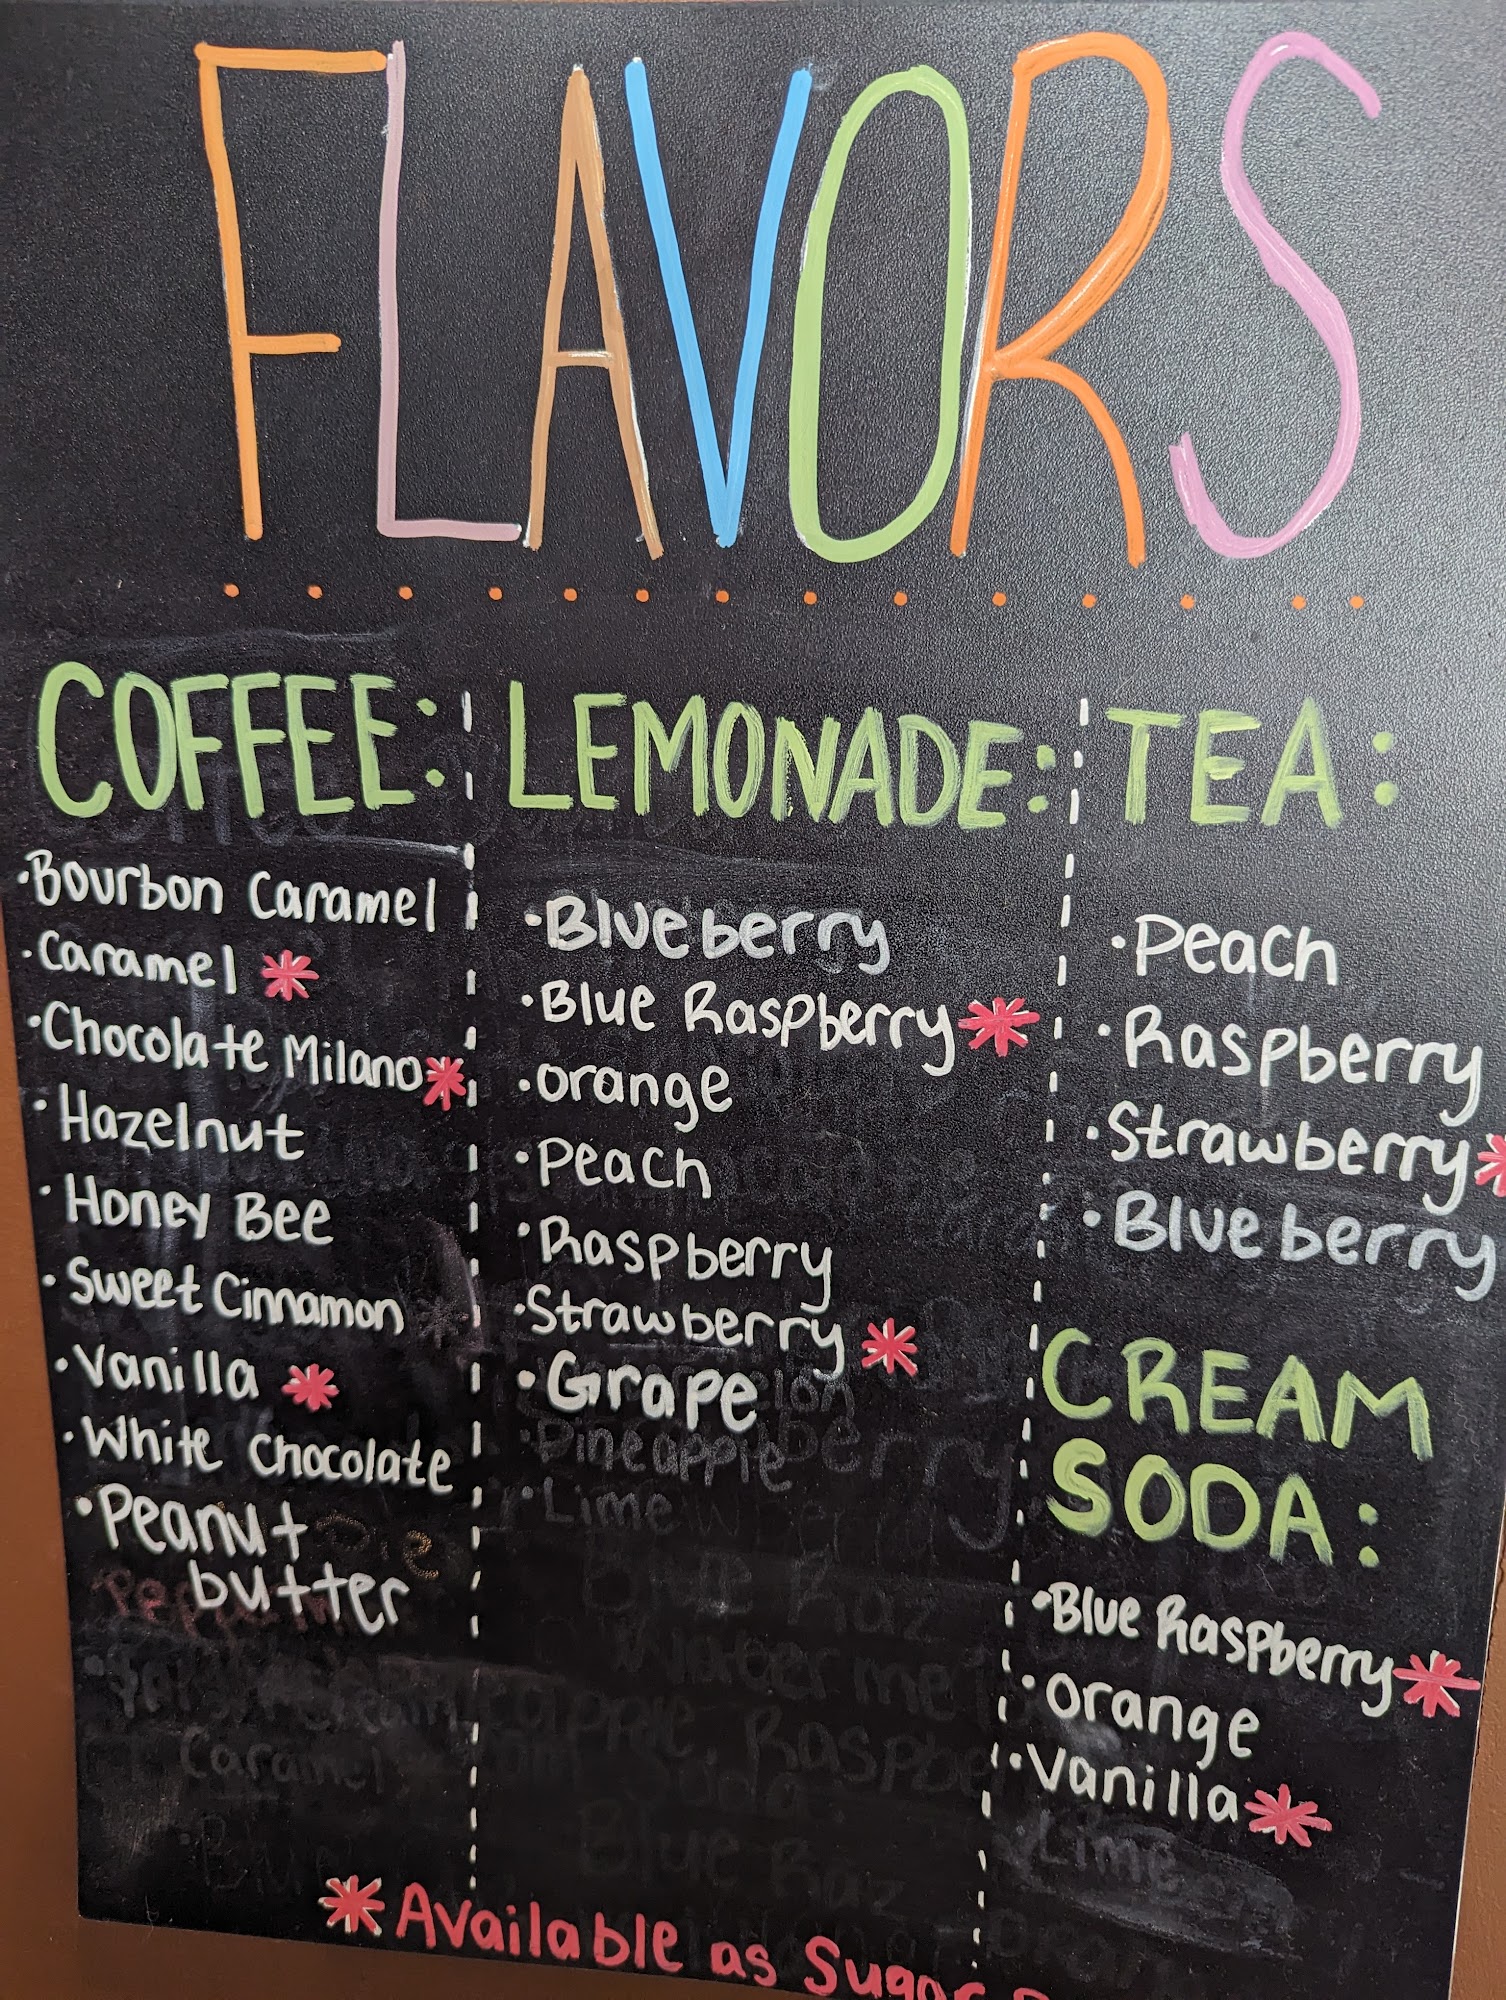 FLAVORS
COFFEE:
·Bourbon Caramel
·Caramel *
·Chocolate Milano*
·Hazelnut
·Honey Bee
·Sweet Cinnamon
·Vanilla *
·White Chocolate
·Peanut
butter
LEMONADE:
·Blueberry
·Blue Raspberry*
·orange
·Peach
·Raspberry
·Strawberry*
·Grape
Pineapple
·Lime
TEA:
·Peach
·Raspberry
·Strawberry*
·Blueberry
CREAM
SODA:
·Blue Raspberry*
·orange
·Vanilla*
Lime
*Available as Sugar